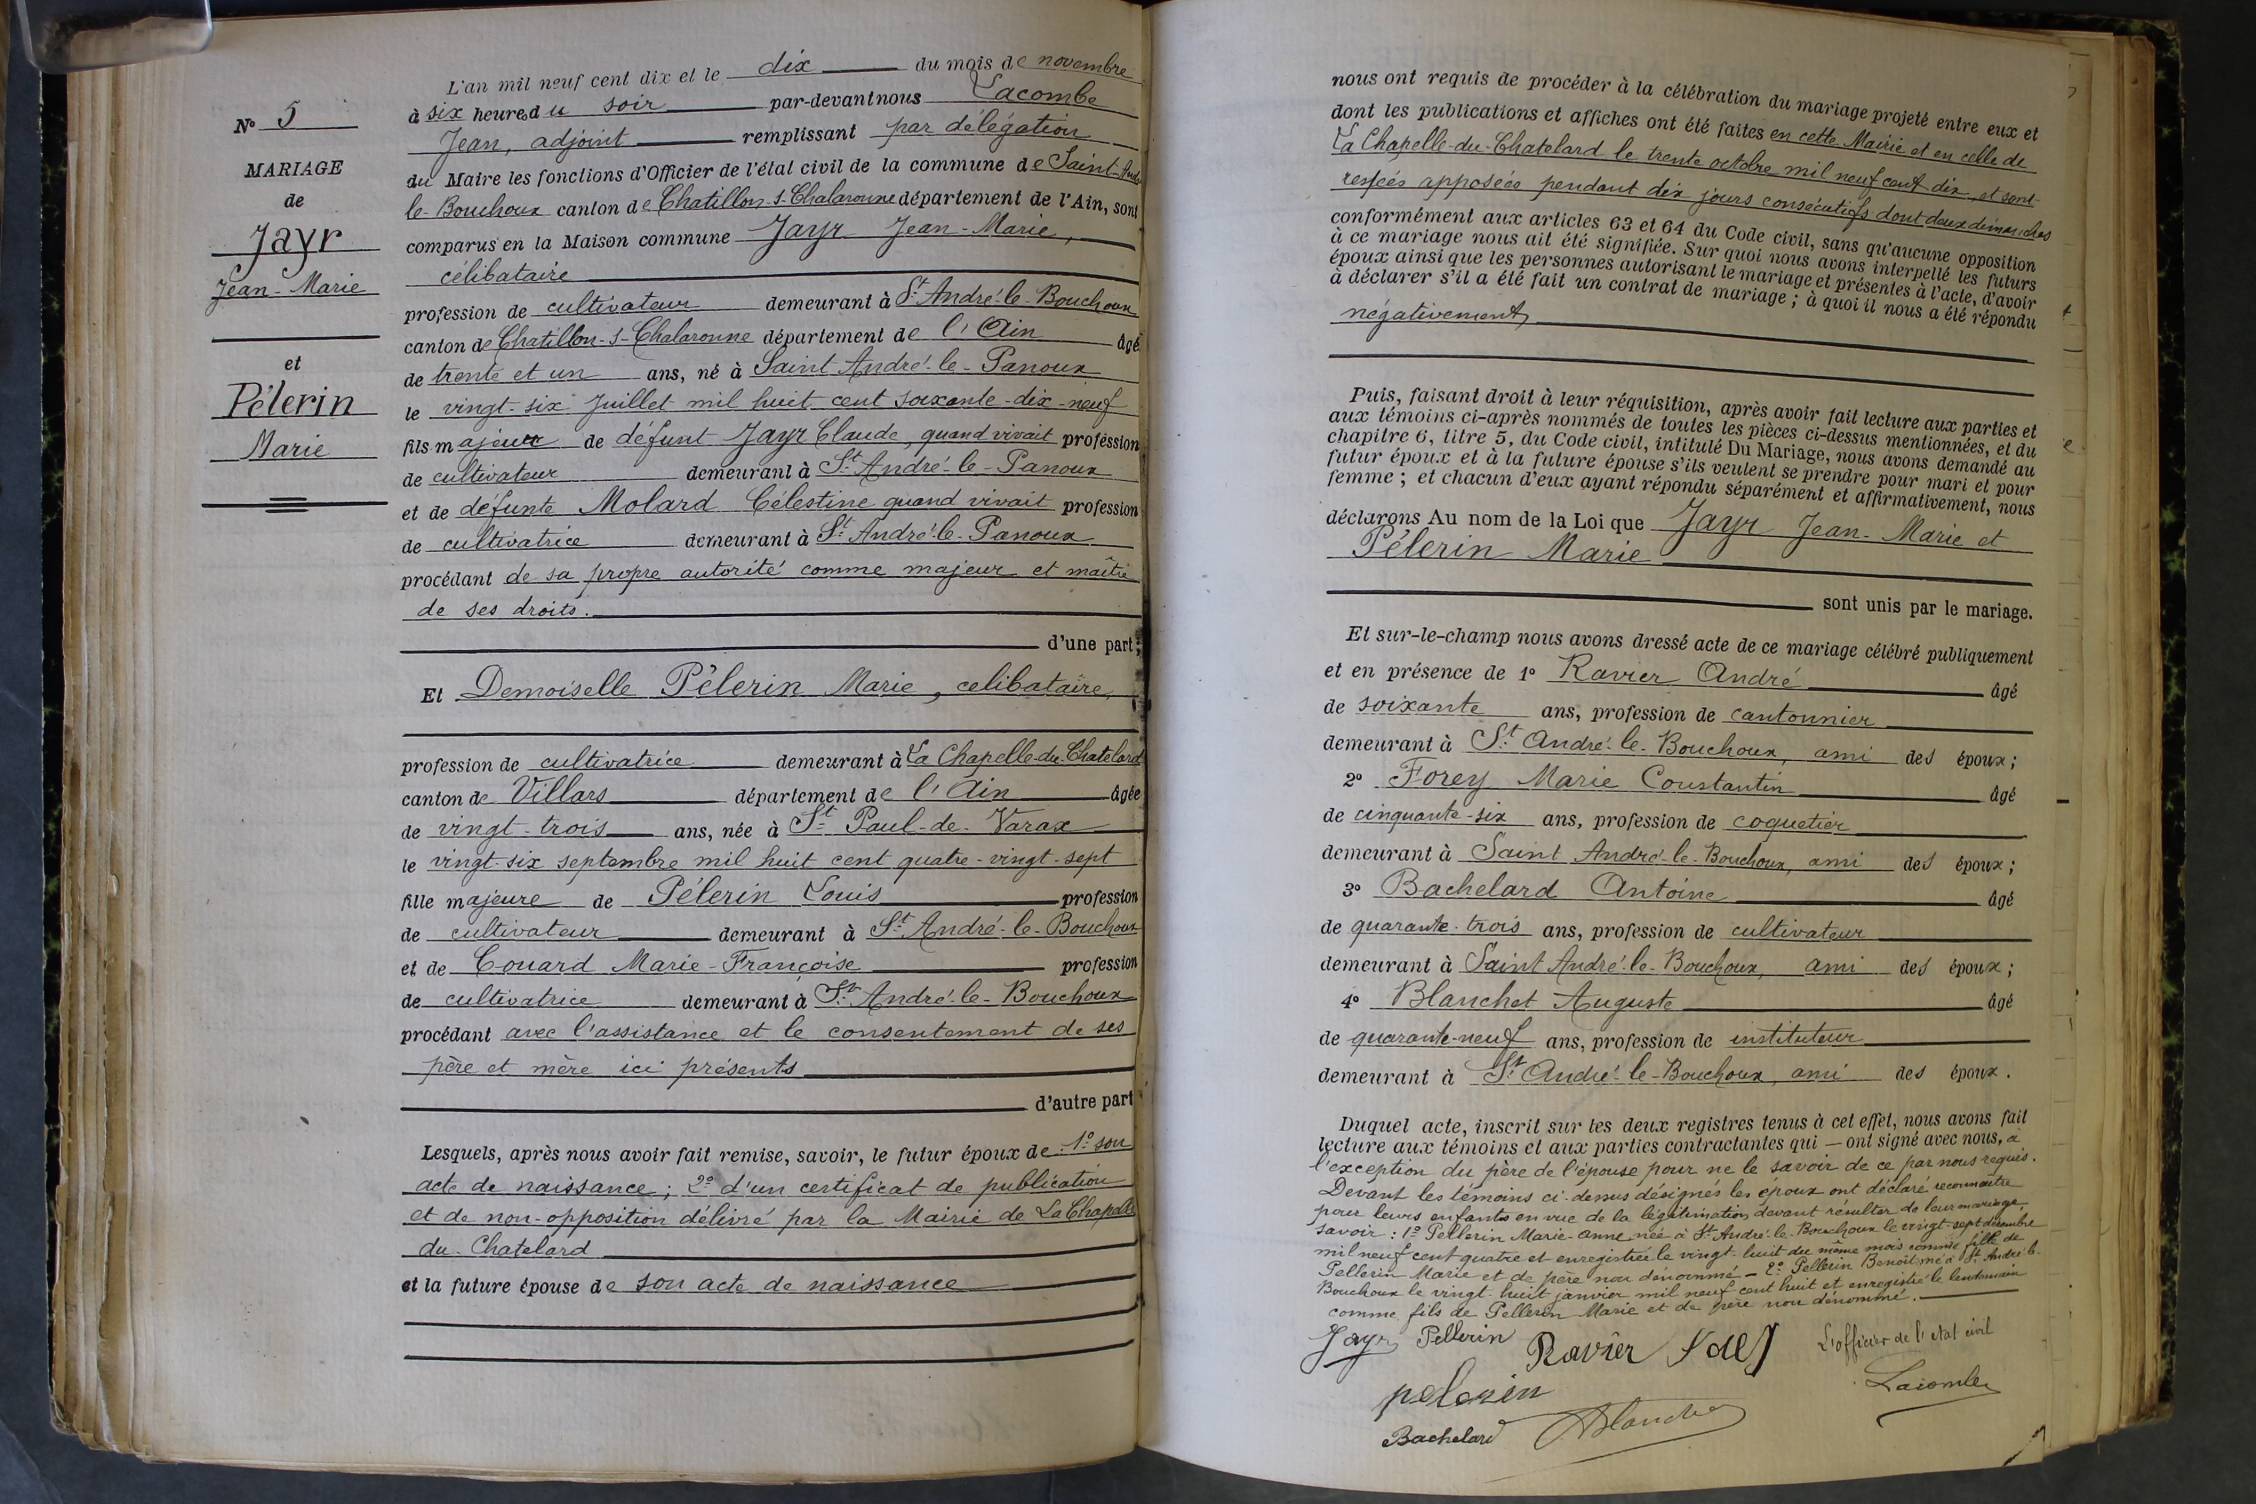 N° 5
MARIAGE
de
Jayr
Jean-Marie
et
Pélerin
Marie
L'an mil neuf cent dix et le dix du mois de novembre
à six heures du soir par-devant nous Lacombe
Jean, adjoint remplissant par délégation
du Maire les fonctions d'Officier de l'état civil de la commune de Saint-André
le-Bouchoux canton de Chatillon-s-Chalaronne département de l'Ain, sont
comparus en la Maison commune Jayr Jean-Marie,
célibataire
profession de cultivateur demeurant à St André-le-Bouchoux
canton de Chatillon-s-Chalaronne département de l'Ain âgé
de trente et un ans, né à Saint André-le-Panoux
le vingt-six Juillet mil huit cent soixante-dix-neuf
fils majeur de défunt Jayr Claude, quand vivait profession
de cultivateur demeurant à St André-le-Panoux
et de défunte Molard Célestine quand vivait profession
de cultivatrice demeurant à St André-le-Panoux
procédant de sa propre autorité comme majeur et maître
de ses droits.
d'une part;
Et Demoiselle Pélerin Marie, celibataire,
profession de cultivatrice demeurant à La Chapelle-du-Chatelard
canton de Villars département de l'Ain âgée
de vingt-trois ans, née à St Paul-de-Varax
le vingt-six septembre mil huit cent quatre-vingt-sept
fille majeure de Pélerin Louis profession
de cultivateur demeurant à St André-le-Bouchoux
et de Couard Marie-Françoise profession
de cultivatrice demeurant à St André-le-Bouchoux
procédant avec l'assistance et le consentement de ses
père et mère ici présents
d'autre part
Lesquels, après nous avoir fait remise, savoir, le futur époux de : 1° son
acte de naissance ; 2° d'un certificat de publication
et de non-opposition délivré par la Mairie de La Chapelle
du-Chatelard
et la future épouse de son acte de naissance
nous ont requis de procéder à la célébration du mariage projeté entre eux et
dont les publications et affiches ont été faites en cette Mairie et en celle de
La Chapelle-du-Chatelard le trente octobre mil neuf cent dix, et sont
restées apposées pendant dix jours consécutifs dont deux dimanches
conformément aux articles 63 et 64 du Code civil, sans qu'aucune opposition
à ce mariage nous ait été signifiée. Sur quoi nous avons interpellé les futurs
époux ainsi que les personnes autorisant le mariage et présentes à l'acte, d'avoir
à déclarer s'il a été fait un contrat de mariage ; à quoi il nous a été répondu
négativement
Puis, faisant droit à leur réquisition, après avoir fait lecture aux parties et
aux témoins ci-après nommés de toutes les pièces ci-dessus mentionnées, et du
chapitre 6, titre 5, du Code civil, intitulé Du Mariage, nous avons demandé au
futur époux et à la future épouse s'ils veulent se prendre pour mari et pour
femme ; et chacun d'eux ayant répondu séparément et affirmativement, nous
déclarons Au nom de la Loi que Jayr Jean-Marie et
Pélerin Marie
sont unis par le mariage.
Et sur-le-champ nous avons dressé acte de ce mariage célébré publiquement
et en présence de 1° Ravier André âgé
de soixante ans, profession de cantonnier
demeurant à St André-le-Bouchoux, ami des époux ;
2° Forey Marie Constantin âgé
de cinquante-six ans, profession de coquetier
demeurant à Saint André-le-Bouchoux, ami des époux ;
3° Bachelard Antoine âgé
de quarante-trois ans, profession de cultivateur
demeurant à Saint André-le-Bouchoux, ami des époux ;
4° Blanchet Auguste âgé
de quarante-neuf ans, profession de instituteur
demeurant à St André-le-Bouchoux, ami des époux.
Duquel acte, inscrit sur les deux registres tenus à cet effet, nous avons fait
lecture aux témoins et aux parties contractantes qui — ont signé avec nous, à
l'exception du père de l'épouse pour ne le savoir de ce par nous requis.
Devant les témoins ci-dessus désignés les époux ont déclaré reconnaître
pour leurs enfants en vue de la légitimation devant résulter de leur mariage,
savoir : 1° Pellerin Marie-Anne née à St André-le-Bouchoux le vingt-sept décembre
mil neuf cent quatre et enregistrée le vingt-huit du même mois comme fille de
Pellerin Marie et de père non dénommé — 2° Pellerin Benoit, né à St André-le-
Bouchoux le vingt-huit janvier mil neuf cent huit et enregistré le lendemain
comme fils de Pellerin Marie et de père non dénommé.
Jayr Pellerin Ravier L'officier de l'état civil
pelerin Lacombe
Bachelard Blanchet